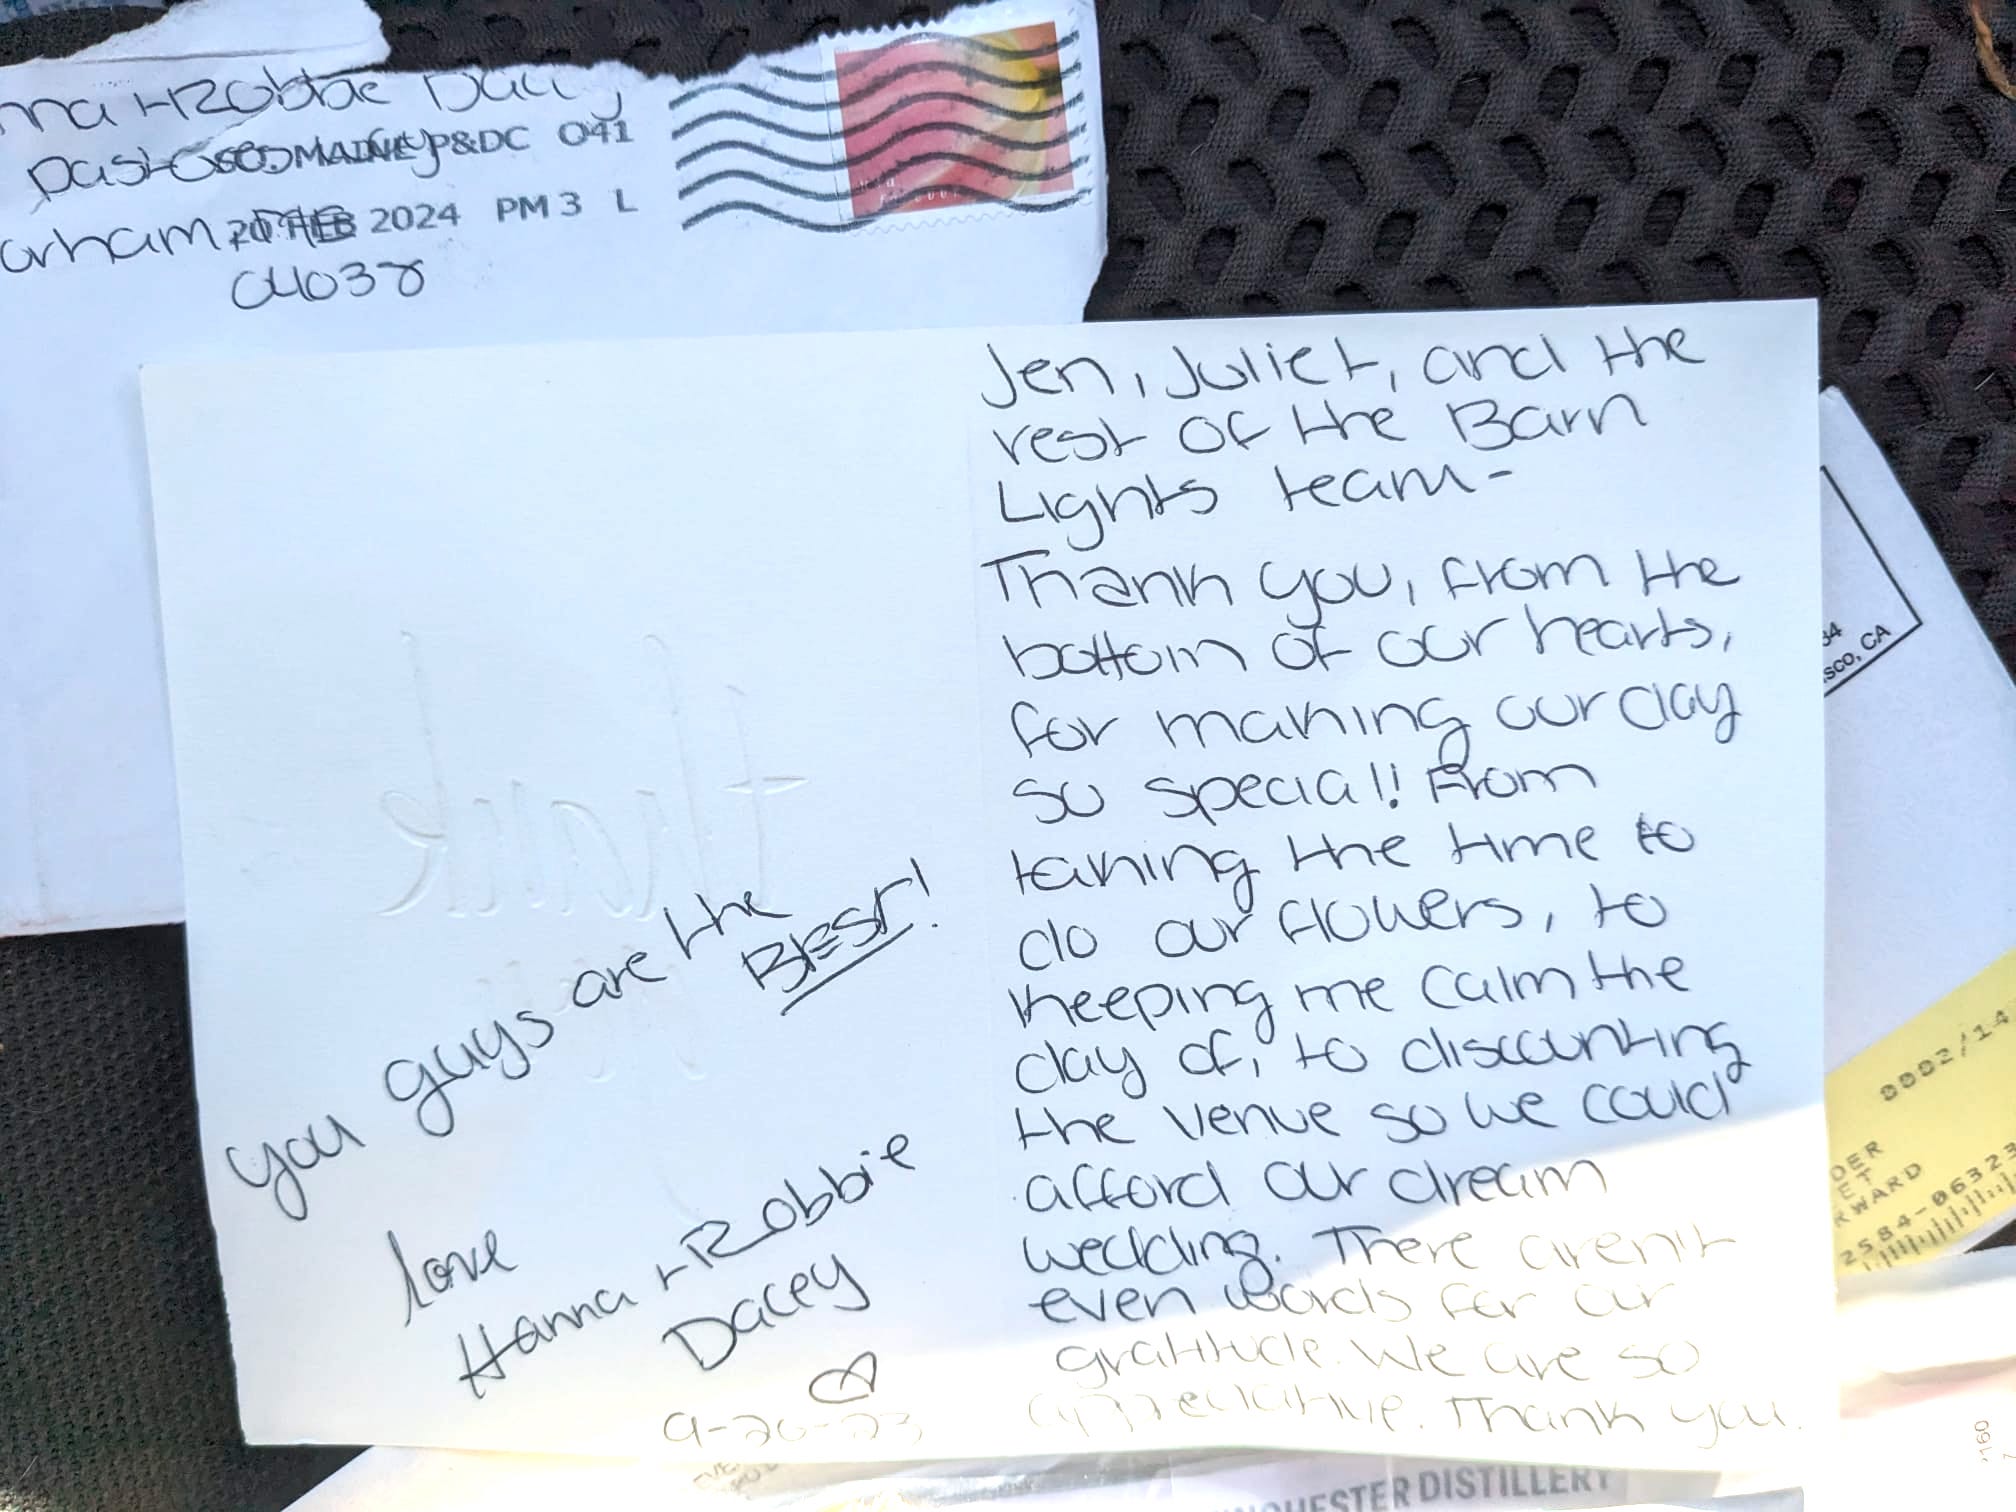 + Robbie
MAINE P&DC 041
20 FEB 2024 PM 3 L
04038
Jen, Juliet, and the
rest of the Barn
Lights team-
Thank you, from the
bottom of our hearts,
for making our day
so special!! From
taking the time to
do our flowers, to
keeping me calm the
day of, to discounting
the venue so we could
afford our dream
wedding. There aren't
even words for our
gratitude. We are so
appreciative. Thank you.
thank
you guys are the
BEST!
love
Hanna + Robbie
Dacey
9-20-23
CA
0002/14
2584-06323
DISTILLERY